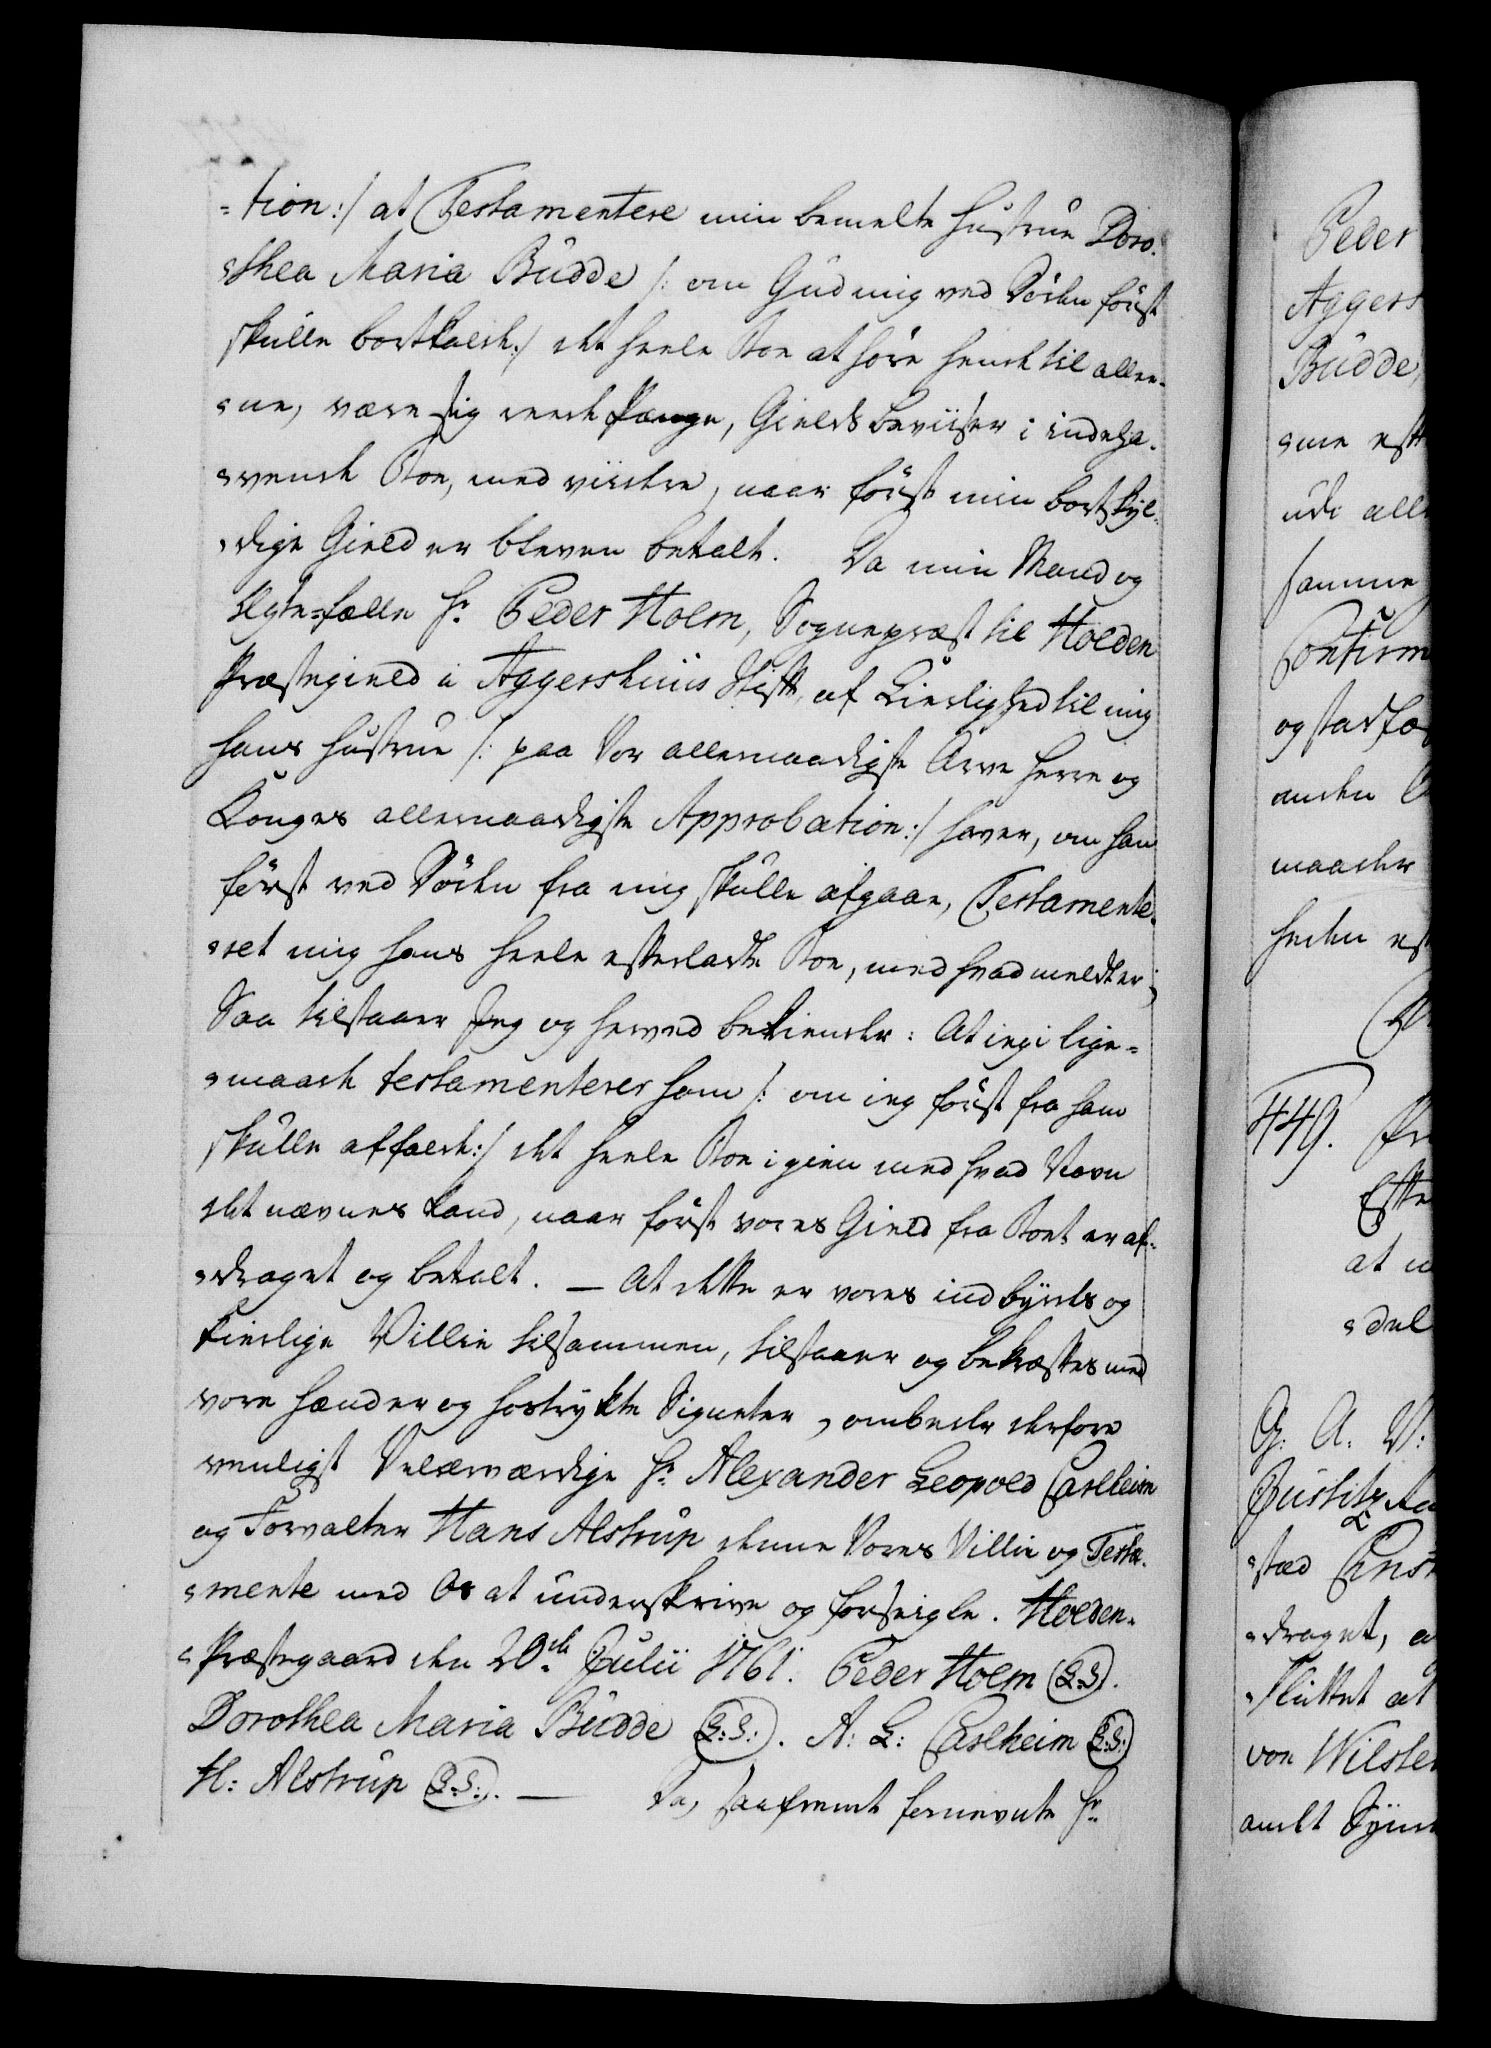 =tion:/ at Testamentere min bemelte Hustrue Doro-
=thea Maria Budde /: om Gud mig ved Döden först
skulle bortkalde :/ det heele Boe at höre hende til alle-
=ne, være sig reede Penge, Gields Beviiser i indeha-
=vende Boe, med viidere, naar först min bortskyl-
=dige Gield er bleven betalt. Da min Mand og
Ægte-fælle Hr. Peder Holm, Sognepræst til Holden
Præstegield i Aggershuus Stift, af Kierlighed til mig
hans Hustrue /: paa Vor allernaadigste Arve Herre og
Konges allernaadigste Approbation :/ haver, om han
først ved Döden fra mig skulle afgaae, Testamente-
=ret mig hans heele efterladte Boe, med hvad meldt er;
Saa tilstaaer Jeg og herved bekiender: At jeg i lige-
=maade testamenterer ham /: om jeg först fra ham
skulle affalde :/ det heele Boe igien med hvad Navn
det nævnes kand, naar först vores Gield fra Boet er af-
=draget og betalt. — At dette er vores indbyrdes og
kierlige Villie tilsammen, tilstaaer og bekræftes med
vore Hænder og hostrykte Signeter, ombede derfore
venligst Velærværdige Hr. Alexander Leopold Carlheim
og Forvalter Hans Alstrup denne Vores Villie og Testa-
=mente med Os at underskrive og forseigle. Holden-
=Præstegaard den 20de Julii 1761. Peder Holm (L.S.).
Dorothea Maria Budde (L.S.). A: L: Carlheim (L.S.)
H: Alstrup (L.S.). — Da, saafremt fornevnte Hr.
Peder
Aggers
Budde,
=me eft
udi all
samme
Confirm
og stadfæ
anden
maader
heden
449.
Efte
at
=del
G: A: V:
Justitz
=sted
=draget, a
=fluttet at
von Wilster
andet